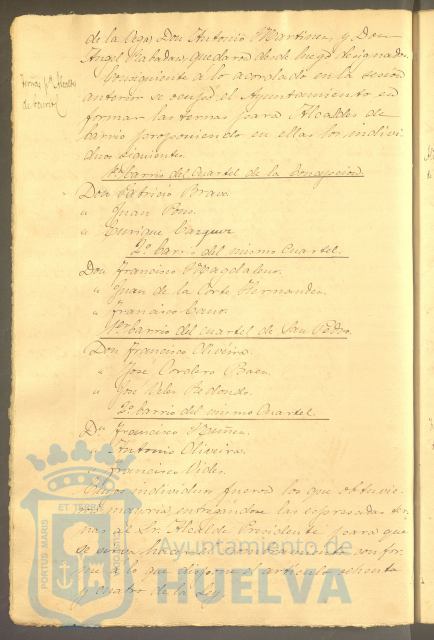 de la Oza, Don Antonio Martinez y Don
Angel Rabadan, quedaron desde luego designados.
Ternas pª Alcaldes
de barrio
Consiguiente a lo acordado en la sesion
anterior se ocupó el Ayuntamiento en
formar las ternas para Alcaldes de
barrio proponiendo en ellas los indivi-
duos siguientes.
1er barrio del Cuartel de la Concepcion.
Don Patricio Bravo
" Juan Pons.
" Enrique Vazquez
2º barrio del mismo Cuartel.
Don Francisco Magdaleno.
" Juan de la Corte Hernandez
" Francisco Cano.
1er barrio del cuartel de San Pedro.
Don Francisco Oliveira.
" José Cordero Baez
" José Velez Redondo.
2º barrio del mismo Cuartel.
Dn Francisco Nuñez
" Antonio Oliveira.
" Francisco Vides
Cuyos individuos fueron los que obtuvie-
ron mayoria, entregandose las espresadas ter-
nas al Sr. Alcalde Presidente para que
se sirva hacer el nombramiento confor-
me a lo que dispone el articulo ochenta
y cuatro de la Ley.
ET TERRE
PORTUS MARIS
CUSTODIA
Ayuntamiento de
HUELVA